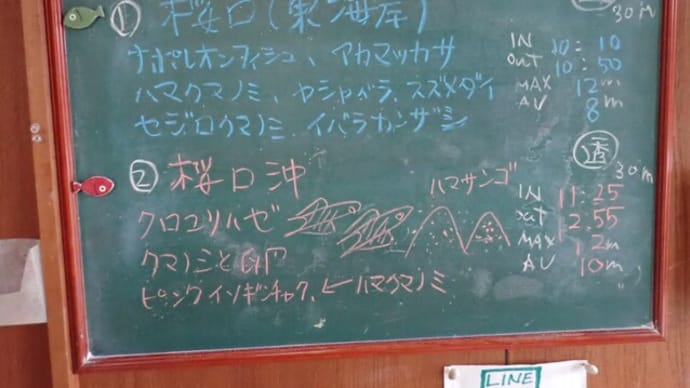 ① 桜口(東海岸)
30m
ナポレオンフィッシュ、アカマツカサ
IN 10:10
OUT 10:50
ハマクマノミ、ヤシャベラ、スズメダイ
MAX 12m
AV 8m
セジロクマノミ、イバラカンザシ
② 桜口沖
透 30m
ハマサンゴ
IN 11:25
クロユリハゼ
OUT 12:55
MAX 12m
クマノミと
AV 10m
ピンクイソギンチャク、←ハマクマノミ
LINE